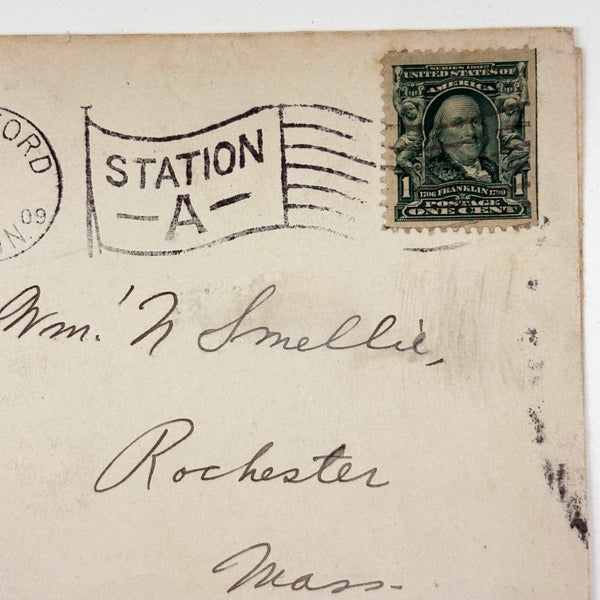 SERIES 1902
UNITED STATES OF
AMERICA
1 1
1706 FRANKLIN 1790
POSTAGE
ONE CENT
ORD
09
N.
STATION
-A-
Wm. N Smellie,
Rochester
Mass.